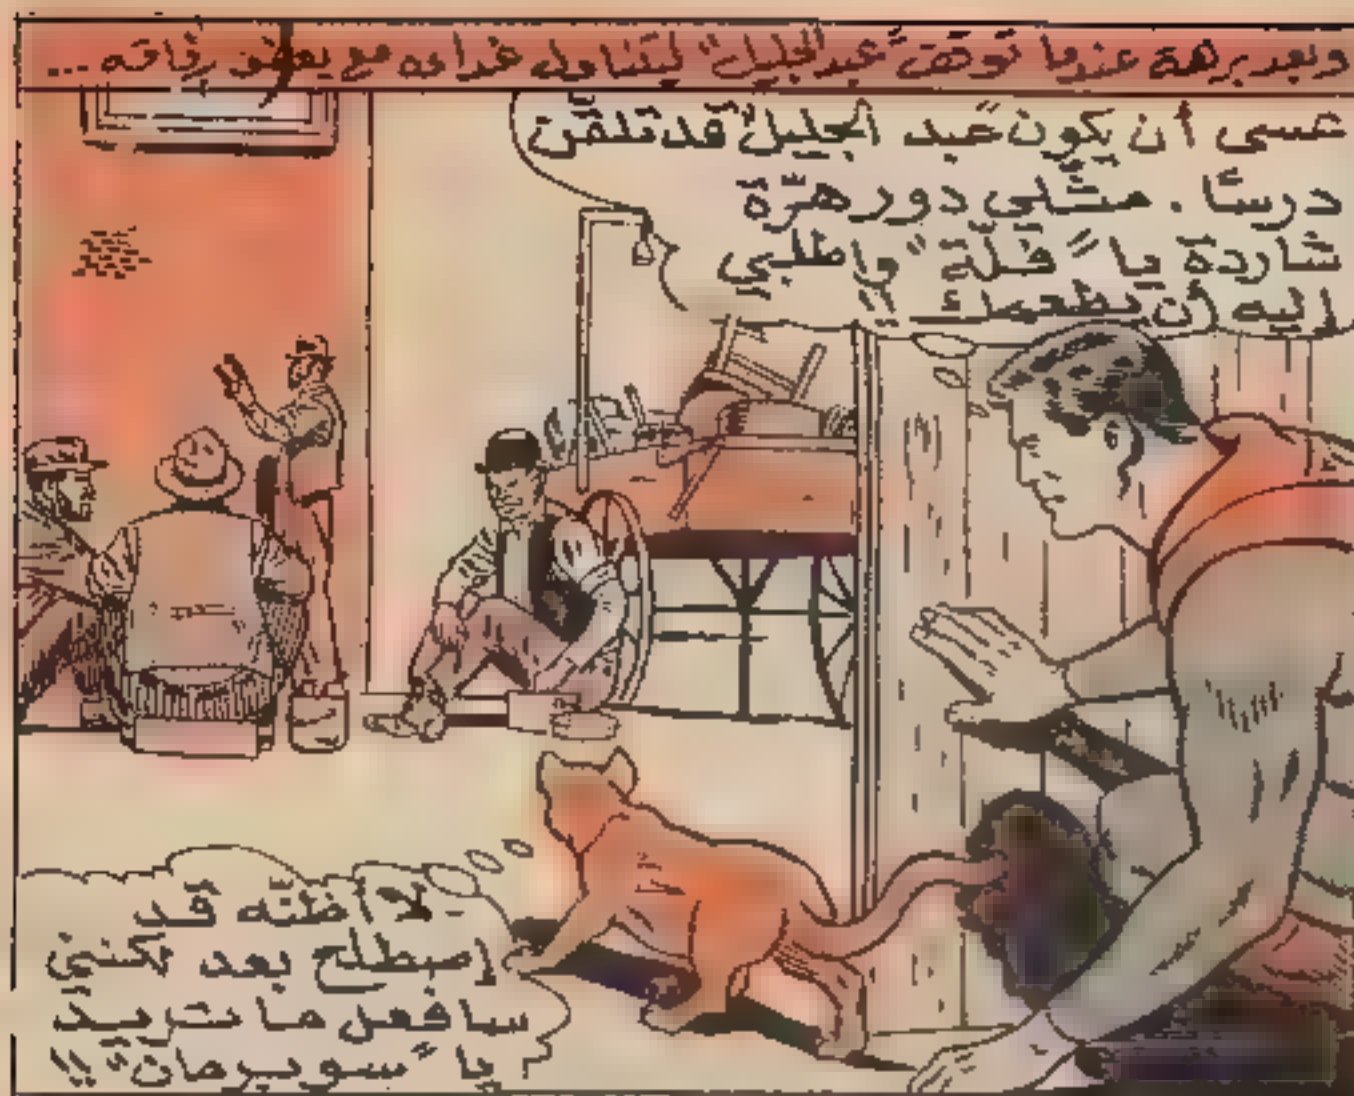 وبعد برهة عندما توقف "عبد الجليل" ليتناول غداءه مع بعض رفاقه ...
عسى أن يكون "عبد الجليل" قد تلقّن
درسًا . مثّلي دور هرّة
شاردة يا "فلّة" واطلبي
إليه أن يطعمك !!
- لا اظنّه قد
إصطلح بعد لكنني
سافعل ما تريد
يا "سوبرمان" !!